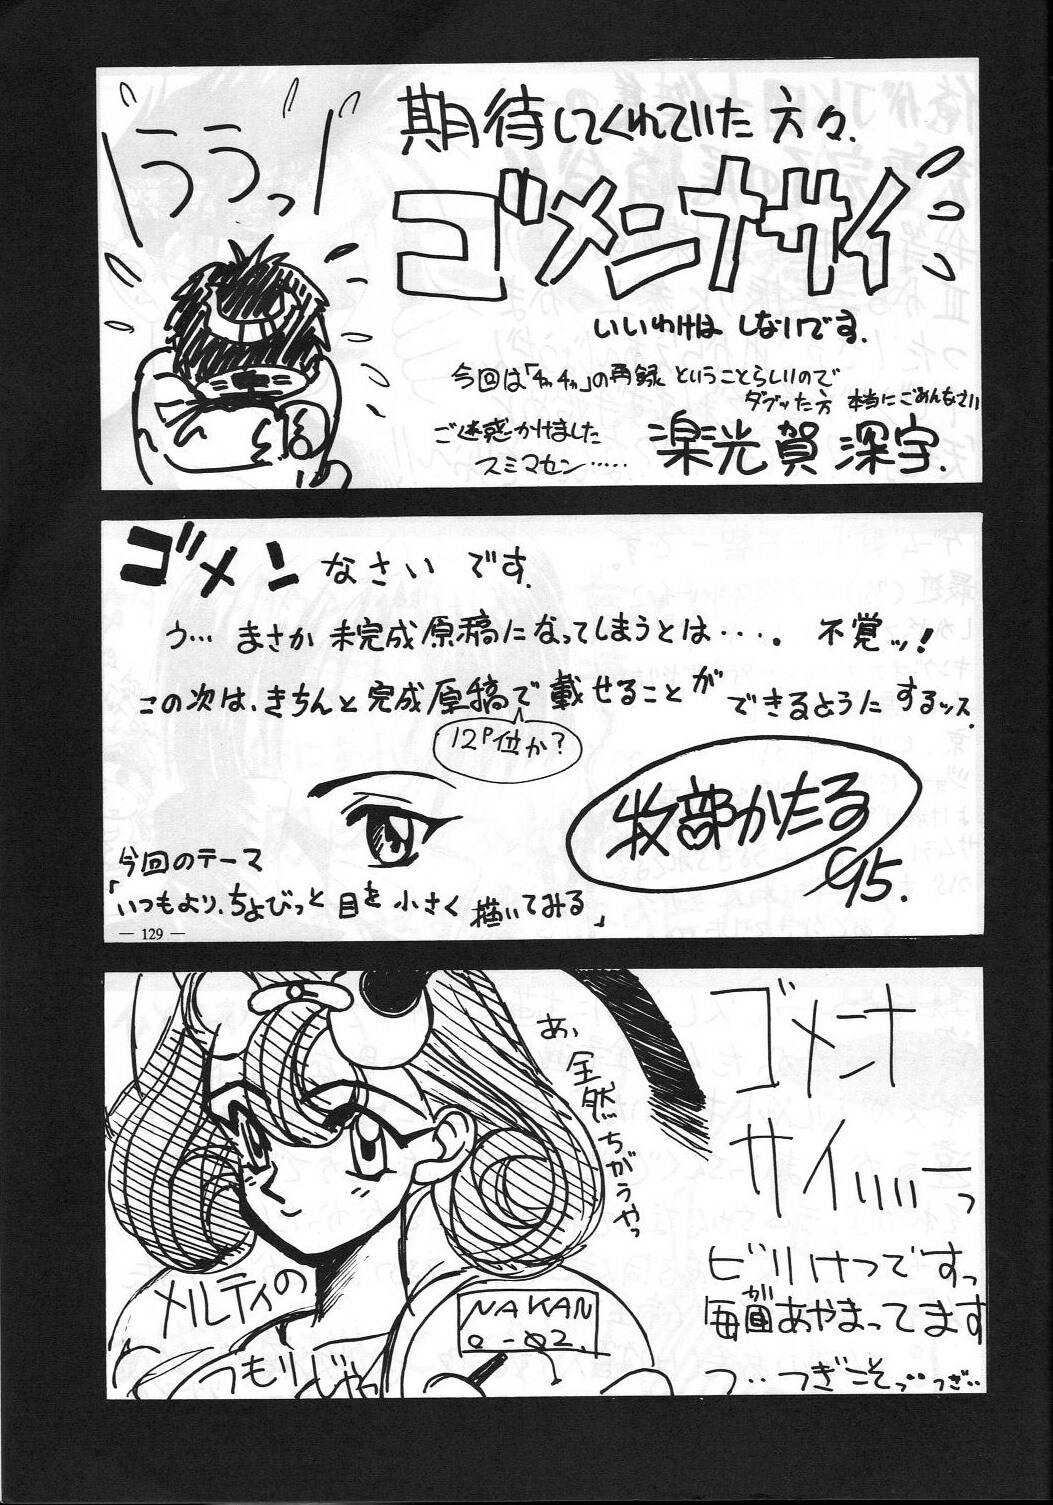 期待してくれていた方々.
ゴメンナサイ
ううっ
いいわけは しないです.
今回は「チャチャ」の再録 ということらしいので
ダブッた方 本当にごめんなさい
ご迷惑かけました
スミマセン……
楽光賀 深宇.
ゴメンなさい です.
う… まさか 未完成原稿になってしまうとは・・・。 不覚ッ!
この次は、きちんと完成原稿で載せることが できるように するッス.
12P位か?
牧部かたる
'95.
今回のテーマ
「いつもより、ちょびっと 目を 小さく 描いてみる」
— 129 —
ゴメーンナ
サイィィィーっ
あ、全然ちがうやっ
ビリけつですっ
毎回あやまってます
が
う‥つぎこそっ‥つぎ‥
メルティの
つもりじゃっ
NAKAN
0-02.